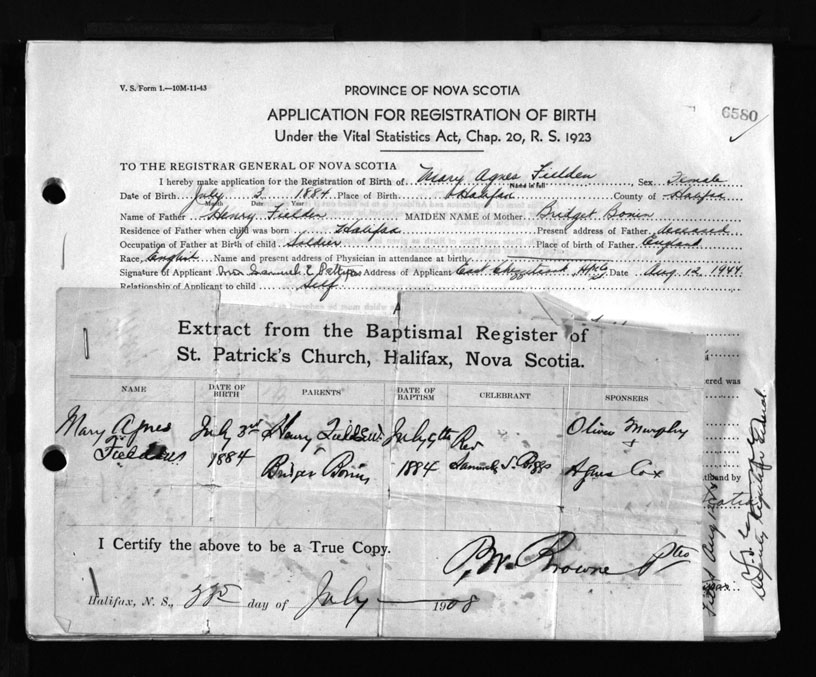 V. S. Form 1.—10M-11-43
PROVINCE OF NOVA SCOTIA
6580
APPLICATION FOR REGISTRATION OF BIRTH
Under the Vital Statistics Act, Chap. 20, R. S. 1923
TO THE REGISTRAR GENERAL OF NOVA SCOTIA
I hereby make application for the Registration of Birth of Mary Agnes Fielden Sex Female
Name in full
Date of Birth July 3 1884 Place of Birth Halifax County of Halifax
Month Date Year
Name of Father Henry Fielden MAIDEN NAME of Mother Bridget Bonin
Residence of Father when child was born Halifax Present address of Father deceased
Occupation of Father at Birth of child Soldier Place of Birth of Father England
Race, English Name and present address of Physician in attendance at birth
Signature of Applicant Mrs Address of Applicant East Date Aug 12 1944
Relationship of Applicant to child Self
Extract from the Baptismal Register of
St. Patrick's Church, Halifax, Nova Scotia.
NAME DATE OF BIRTH PARENTS DATE OF BAPTISM CELEBRANT SPONSERS
Mary Agnes July 3rd Henry July 9th Rev Oliver Murphy
1884 1884 Samuel J. Agnes Cox
I Certify the above to be a True Copy.
Browne
Halifax, N. S., day of July 1908
ered was
tiband by